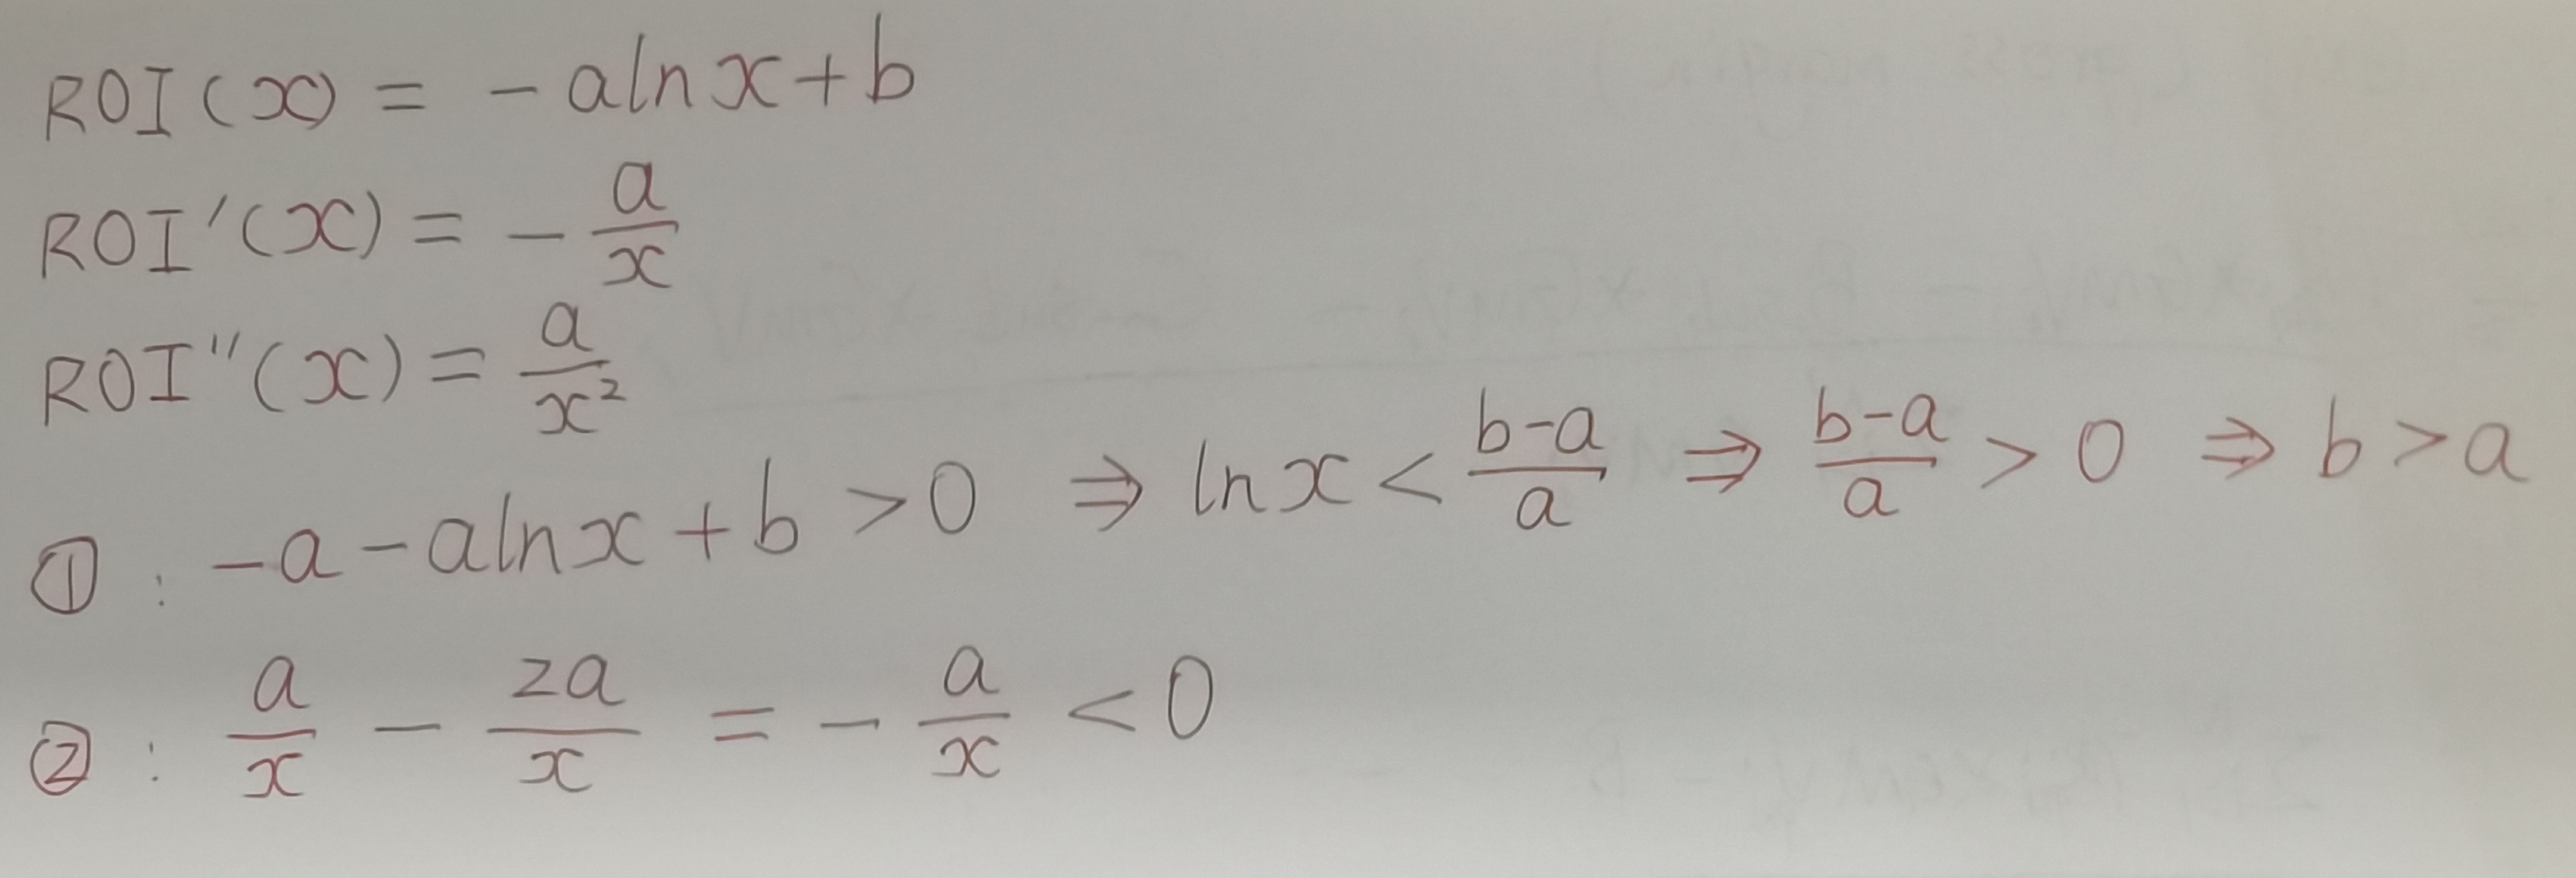 ROI(x) = -alnx+b
ROI'(x) = -a/x
ROI''(x) = a/x²
① : -a-alnx+b>0 ⇒ lnx < (b-a)/a ⇒ (b-a)/a > 0 ⇒ b>a
② : a/x - 2a/x = -a/x < 0